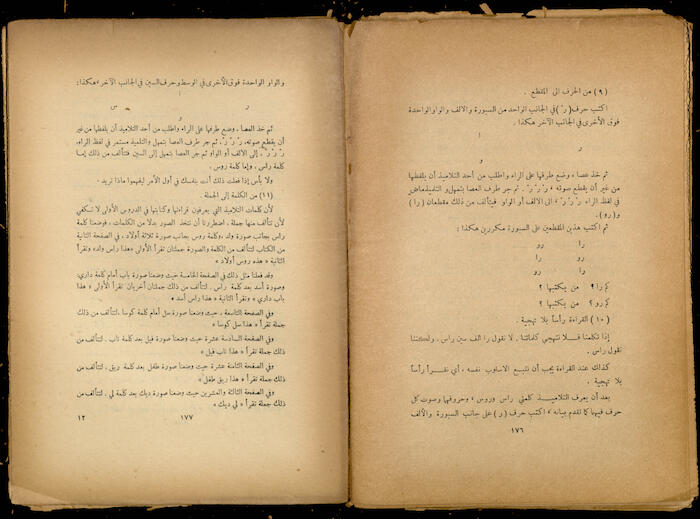 (٩) من الحرف الى المقطع .
اكتب حرف (رَ) في الجانب الواحد من السبورة والالف والواو الواحدة
فوق الأخرى في الجانب الآخر هكذا :
ا
ر
و
ثم خذ عصا ، وضع طرفها على الراء واطلب من أحد التلاميذ أن يلفظها
من غير أن يقطع صوته ، رْ رْ رْ . ثم جر طرف العصا بتمهل والتلميذ ماض
في لفظ الراء رْ رْ رْ ، الى الالف أو الواو فيتألف من ذلك مقطعان ( را )
و ( رو ) .
ثم اكتب هذين المقطعين على السبورة مكررين هكذا :
را رو
رو را
را رو
كم را ؟ من يكتبها ؟
كم رو ؟ من يكتبها ؟
(١٠) القراءة رأساً بلا تهجية .
إذا تكلمنا فلا نتهجى كلماتنا . لا نقول را الف سين راس . ولكننا
نقول راس .
كذلك عند القراءة يجب أن نتبع الاسلوب نفسه ، أي نقرأ رأساً
بلا تهجية .
بعد أن يعرف التلاميذ كلمتي راس وروس ، وحروفها وصوت كل
حرف فيهما كما تقدم بيانه ، اكتب حرف (ر) على جانب السبورة والألف
١٧٦
والواو الواحدة فوق الأخرى في الوسط وحرف السين في الجانب الآخر هكذا :
ا
ر س
و
ثم خذ العصا ، وضع طرفها على الراء واطلب من أحد التلاميذ أن يلفظها من غير
أن يقطع صوته، رْ رْ رْ ، ثم جر طرف العصا بتمهل والتلميذ مستمر في لفظ الراء،
رْ رْ رْ ، إلى الالف أو الواو ثم جر العصا بتمهل إلى السين فتتألف من ذلك إما
كلمة راس ، وإما كلمة روس .
ولا بأس إذا فعلت ذلك أنت بنفسك في أول الأمر ليفهموا ماذا تريد .
(١١) من الكلمة إلى الجملة .
لأن كلمات التلاميذ التي يعرفون قراءتها وكتابتها في الدروس الأولى لا تكفي
لأن تتألف منها جملة ، اضطررنا أن نتخذ الصور بدلا من الكلمات ، فوضعنا كلمة
راس بجانب صورة ولد ، وكلمة روس بجانب صورة ثلاثة أولاد ، في الصفحة الثانية
من الكتاب لتتألف من الكلمة والصورة جملتان تقرأ الأولى «هذا راس ولد» وتقرأ
الثانية « هذه روس أولاد »
وقد فعلنا مثل ذلك في الصفحة الخامسة حيث وضعنا صورة باب أمام كلمة داري ،
وصورة أسد بعد كلمة راس . لتتألف من ذلك جملتان أخريان تقرأ الأولى « هذا
باب داري » وتقرأ الثانية « هذا راس أسد »
وفي الصفحة التاسعة ، حيث وضعنا صورة سل أمام كلمة كوسا . لتتألف من ذلك
جملة تقرأ « هذا سل كوسا »
وفي الصفحة السادسة عشرة حيث وضعنا صورة فيل بعد كلمة ناب . لتتألف من
ذلك جملة تقرأ « هذا ناب فيل »
وفي الصفحة الثامنة عشرة حيث وضعنا صورة طفل بعد كلمة ريق . لتتألف من
ذلك جملة تقرأ « هذا ريق طفل »
وفي الصفحة الثالثة والعشرين حيث وضعنا صورة ديك بعد كلمة لي . لتتألف من
ذلك جملة تقرأ « لي ديك »
١٧٧ ١٢